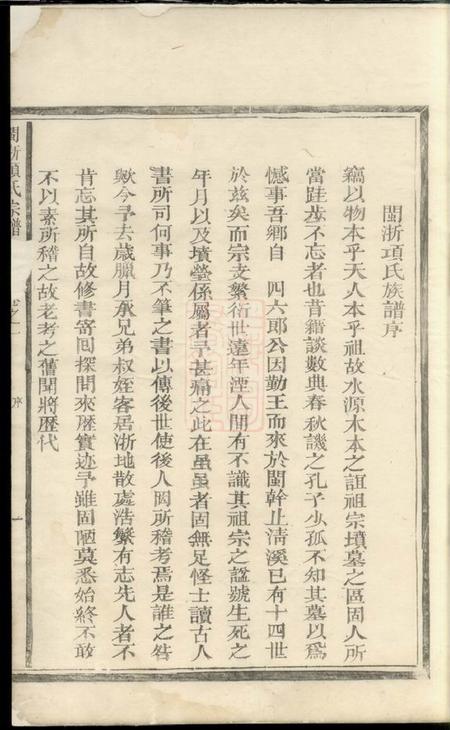 閩浙項氏族譜序
竊以物本乎天人本乎祖故水源木本之誼祖宗墳墓之區固人所
當跬步不忘者也昔籍談數典春秋譏之孔子少孤不知其墓以爲
憾事吾鄉自 四六郎公因勤王而來於閩幹止清溪已有十四世
於兹矣而宗支繁衍世遠年湮人間有不識其祖宗之諡號生死之
年月以及墳塋係屬者予甚痛之此在虽虽者固無足怪士讀古人
書所司何事乃不筆之書以傳後世使後人罔所稽考焉是誰之咎
歟今予去歲臘月承兄弟叔姪客居浙地散處浩繁有志先人者不
肯忘其所自故修書寄囘探問來歷實迹予雖固陋莫悉始終不敢
不以素所稽之故老考之舊聞將歷代
閩浙項氏宗譜
序
一